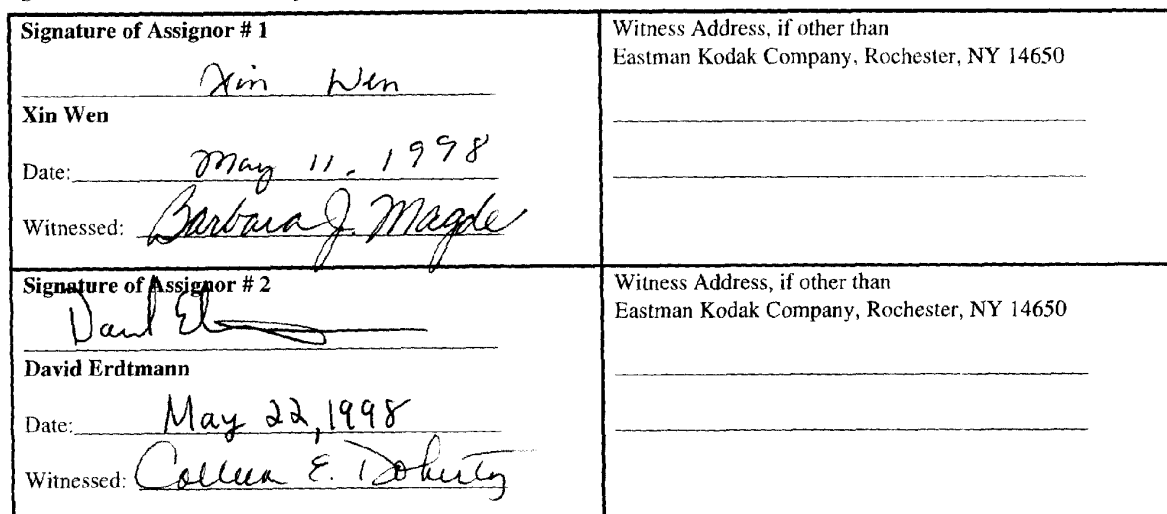 Signature of Assignor # 1
Xin Wen
Xin Wen
Date: May 11, 1998
Witnessed: Barbara J. Magde
Witness Address, if other than
Eastman Kodak Company, Rochester, NY 14650
Signature of Assignor # 2
David
David Erdtmann
Date: May 22, 1998
Witnessed: Colleen E. Doherty
Witness Address, if other than
Eastman Kodak Company, Rochester, NY 14650